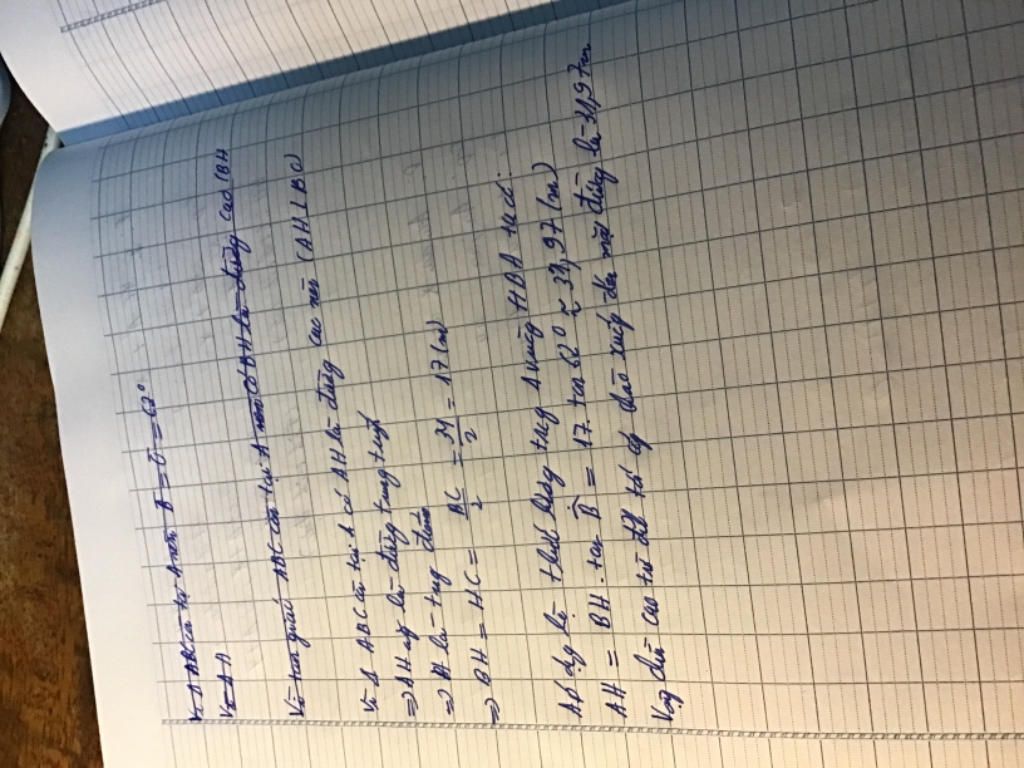 Vì Δ ABC cân tại A nên B = C = 62°
Vì Δ A
Vì tam giác ABC cân tại A có BH là đường cao (BH
Vì Δ ABC cân tại A có AH là đường cao nên (AH ⊥ BC)
=> AH là đường trung tuyến
=> H là trung điểm
=> BH = HC = BC/2 = 34/2 = 17 (m)
Áp dụng hệ thức lượng trong Δ vuông HBA ta có:
AH = BH . tan B = 17 . tan 62° ≈ 31,97 (m)
Vậy chiều cao từ xuống đến mặt là 31,97m